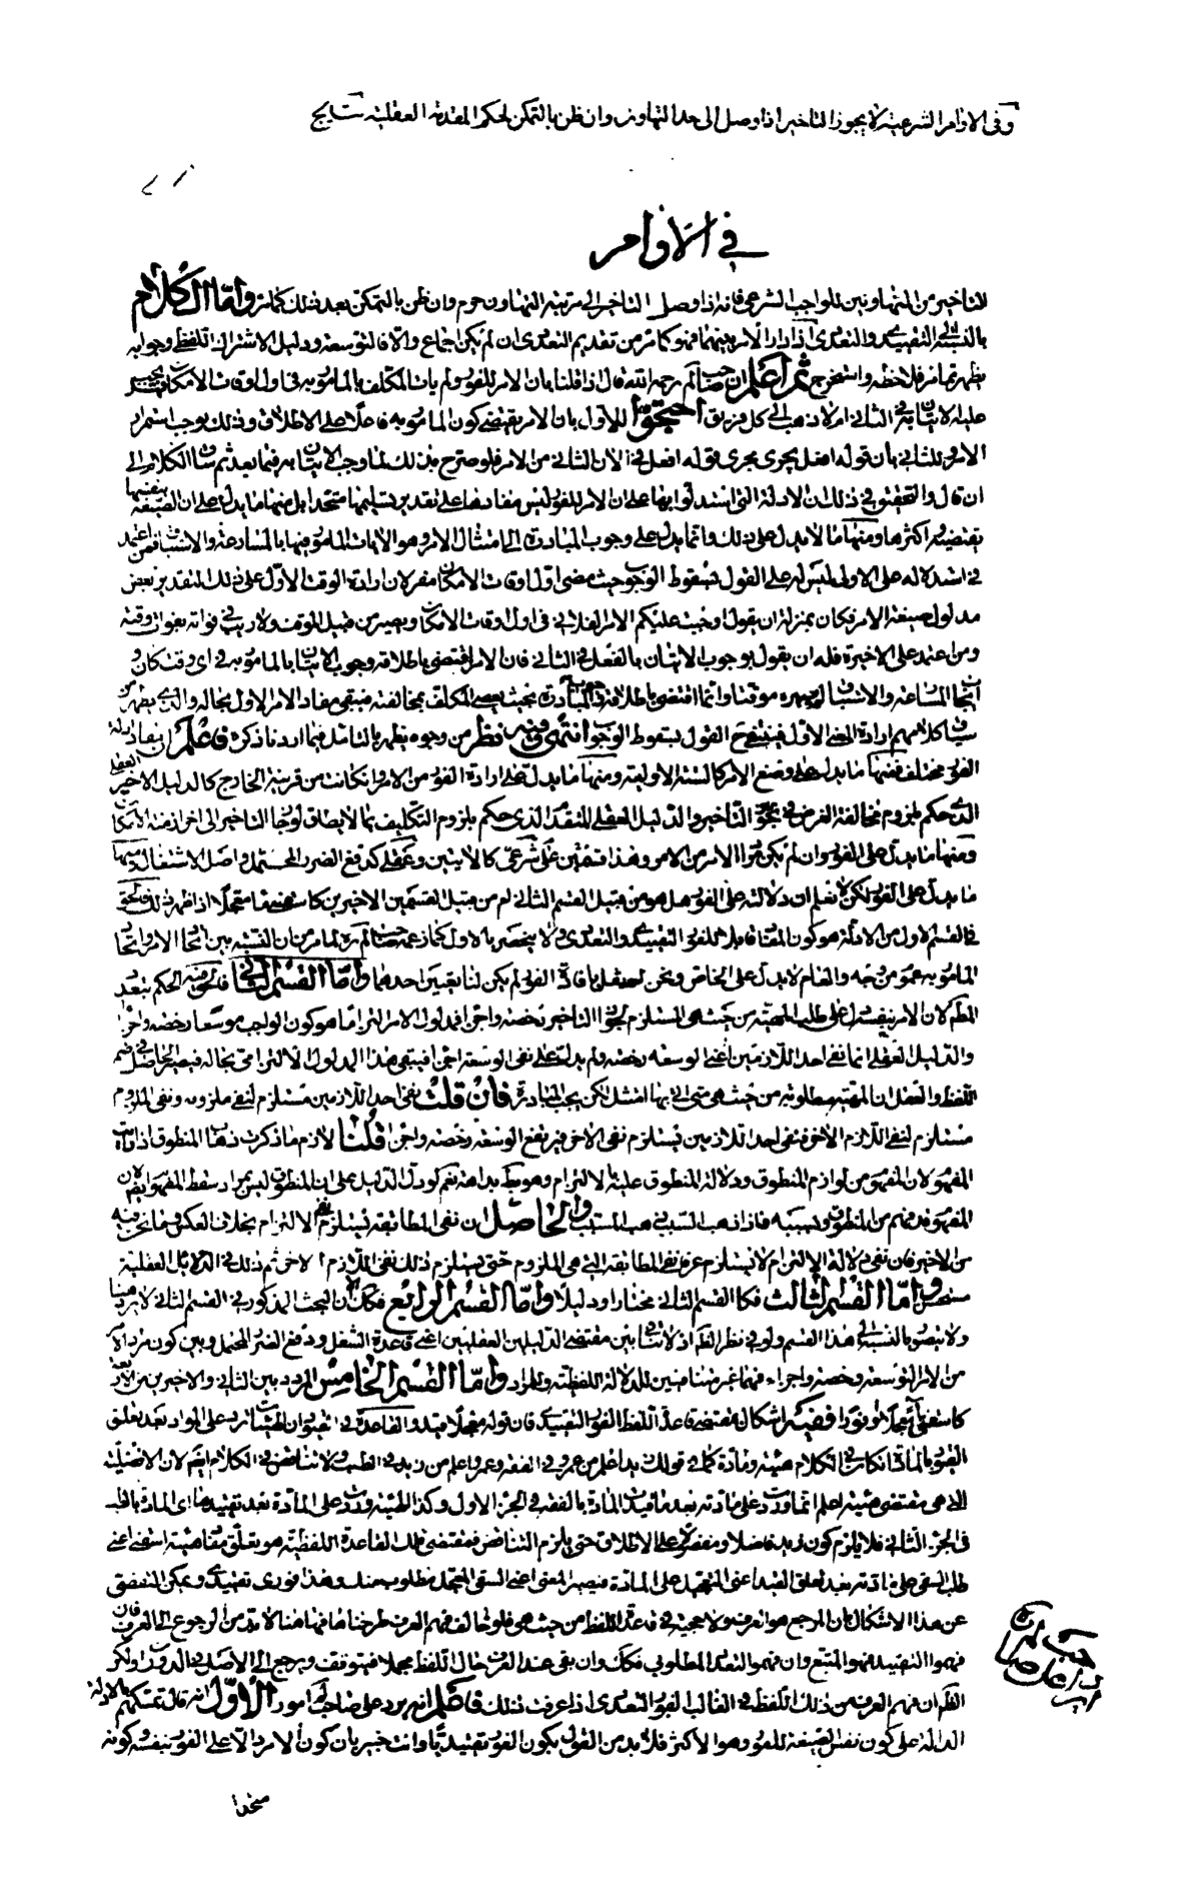 وفى الاوامر الشرعية لا يجوز التاخير اذا وصل الى حد التهاون وان ظن بالتمكن لحكم المقدمة العقلية
في الاوامر
التاخير من المتهاونين للواجب الشرعى فانه اذا وصل التاخير الى مرتبة التهاون حرم وان ظن بالتمكن بعد ذلك كما مر واما الكلام
بالنسبة الى التقييدى والتعددى اذا دار الامر بينهما فهو كما مر من تقديم التعددى ان لم يكن اجماع والا فالتوسعة ودليل الاشتراك اللفظى وجوابه
يظهر مما مر فلاحظه واستخرج ثم اعلم ان صاحب لم رحمه الله قال اذا قلنا بان الامر للفور ولم يات المكلف بالمامور به فى اول اوقات الامكان فهل يجب
عليه الاتيان به فى الثانى ام لا ذهب الى كل فريق احتجوا للاول بان الامر يقتضى كون المامور به فاعلا على الاطلاق وذلك يوجب استمرار
الامر وللثانى بان قوله افعل يجرى مجرى قوله افعل فى الآن الثانى من الامر فلو صرح بذلك لما وجب الاتيان به فيما بعد ثم ساق الكلام الى
ان قال والتحقيق فى ذلك ان الادلة التى استدلوا بها على ان الامر للفور ليس مفادها على تقدير تسليمها متحدا بل منها ما يدل على ان الصيغة بنفسها
تقتضيه وهو اكثرها ومنها ما لا يدل على ذلك وانما يدل على وجوب المبادرة الى امتثال الامر وهو الآيات المامور فيها بالمسارعة والاستباق فمن اعتمد
فى استدلاله على الاولى ليس له عن القول بسقوط الوجوب حيث يمضى اول اوقات الامكان مفر لان ارادة الوقت الاول على ذلك التقدير بعض
مدلول صيغة الامر فكان بمنزلة ان يقول اوجبت عليكم الامر الفلانى فى اول اوقات الامكان ويصير من قبيل الموقت ولا ريب فى فواته بفوات وقته
ومن اعتمد على الاخيرة فله ان يقول بوجوب الاتيان بالفعل فى الثانى فان الامر اقتضى باطلاقه وجوب الاتيان بالمامور به فى اى وقت كان و
ايجاب المسارعة والاستباق لم يصيره موقتا وانما اقتضى باطلاقه وجوب المبادرة بحيث يعصى المكلف بمخالفته فيبقى مفاد الامر الاول بحاله والذى يظهر من
سياق كلامهم ارادة المعنى الاول فينبغى القول بسقوط الوجوب انتهى وفيه نظر من وجوه يظهر بالتامل فيما اردنا ذكره فاعلم ان مفاد ادلة
الفور مختلف فمنها ما يدل على وضع الامر كالستة الاولية ومنها ما يدل على ارادة الفور من الامر وان كانت من قرينة الخارج كالدليل العقلى الاخير
الذى حكم بلزوم مخالفة الغرض فى تجويز التاخير والدليل العقلى المتقدم الذى حكم بلزوم التكليف بما لا يطاق لو جاز التاخير الى اخر ازمنة الامكان
ومنها ما يدل على الفور وان لم يكن مرادا للامر من الامر وهذا قسمين على شرعى كالآيتين وعقلى كدفع الضرر المحتمل واصل الاشتغال ومنها
ما يدل على الفور لكن لا نعلم ان دلالته على الفور هل هو من قبيل القسم الثانى ام من قبيل القسمين الاخيرين
فى القسم الاول من الادلة هو كون المقام قابلا للفور التقييدى والتعددى ولا ينحصر بالاول كما زعمه صاحب لم ره لما مر من ان النسبة بين ايجاب الامر وايجاب
المامور به عموم من وجه والعام لا يدل على الخاص واما القسم الثانى فالحق فيه الحكم بتعدد
المط لان الامر بنفسه دل على طلب المهية من حيث هى المستلزم لجواز التاخير رخصة واجزاء فمدلول الامر التزاما هو كون الواجب موسعا رخصة واجزاء
والدليل العقلى انما نفى احد اللازمين اعنى الوسعة رخصة ولم يدل على نفى الوسعة اجزاء فيبقى هذا المدلول الالتزامى بحاله فيصير الحاصل من ضم
اللفظ والعقل ان المهية مطلوبة من حيث هى متى اتى بها امتثل لكن يجب المبادرة فان قلت نفى احد اللازمين مستلزم لنفى ملزومه ونفى الملزوم
مستلزم لنفى اللازم الآخر فنفى احد اللازمين يستلزم نفى الآخر فيرتفع الوسعة رخصة واجزاء قلنا لازم ما ذكرت ذهاب المنطوق اذا مات
المفهوم لان المفهوم من لوازم المنطوق ودلالة المنطوق عليه بالالتزام وهو بط بداهة نعم لو دل الدليل على ان المنطوق ليس بمراد سقط المفهوم ايضا لان
المفهوم قد فهم من المنطوق وبسببه فاذا ذهب السبب ذهب المسبب والحاصل ان نفى المطابقة يستلزم نفى الالتزام بخلاف العكس وما نحن فيه
من الاخير فان نفى دلالة الالتزام لا يستلزم عرفا نفى المطابقة التى هى الملزوم حتى يستلزم ذلك نفى اللازم الآخر ثم ذلك فى الدلائل العقلية
واما القسم الثالث فكالقسم الثانى مختارا ودليلا واما القسم الرابع فكك لان البحث المذكور فى القسم الثانى لا يرد هنا
ولا يتصور بالنسبة الى هذا القسم ولو فى نظر الظ اذ لا تنافى بين مقتضى الدليلين العقليين اعنى قاعدة الشغل ودفع الضرر المحتمل وبين كون مراد الآمر
من الامر التوسعة رخصة واجزاء فهما غير منافيين للدلالة اللفظية وللمراد واما القسم الخامس المردد بين الثانى والاخيرين الاربعة
كاسقنى معجلا او فورا ففيه اشكال مقتضى قاعدة اللفظ الفور التقييدى فان قوله معجلا قيد والقاعدة فى القيود ان الهيئات ترد على المواد بعد تعلق
القيود بالمادة ان كان فى الكلام هيئة ومادة كما فى قولك زيد اعلم من عمرو فى الفقه وعمرو اعلم من زيد فى الطب ولا تناقض فى الكلام ايضا لان الافضلية
التى هى مقتضى هيئة اعلم انما وردت على مادته بعد ما قيدت المادة بالفقه فى الجزء الاول وكذا الهيئة وردت على المادة بعد تقييدها اى المادة بالطب
فى الجزء الثانى فلا يلزم كون زيد فاضلا ومفضولا على الاطلاق حتى يلزم التناقض فمقتضى تلك القاعدة اللفظية هو تعلق مقتضى هيئة اسقنى اعنى
طلب السقى على مادته بعد تعلق القيد اعنى التعجيل على المادة فيصير المعنى اعنى السقى المعجل مطلوب منك وهذا فورى تقييدى ويمكن التفصى
عن هذا الاشكال بان المرجع هو العرف ولا حجية فى قاعدة اللفظ من حيث هو فلو خالف فهم العرف طرحناها فها هنا لابد من الرجوع الى العرف فان
فهموا التقييد فهو المتبع وان فهموا التعدد المطلوبى فكك وان بقى عند العرف حال اللفظ مجملا فيتوقف ويرجع الى الاصل فى الدوران ولكن
الظ ان فهم العرف من ذلك اللفظ فى الغالب الفور التعددى اذا عرفت ذلك فاعلم انه يرد على صاحب لم امور الاول انه قال تمسكهم بالادلة
الدالة على كون نفس الصيغة للفور هو الاكثر فلابد من القول بكون الفور تقييديا وانت خبير بان كون الامر دالا على الفور بنفسه كونه
متحدا